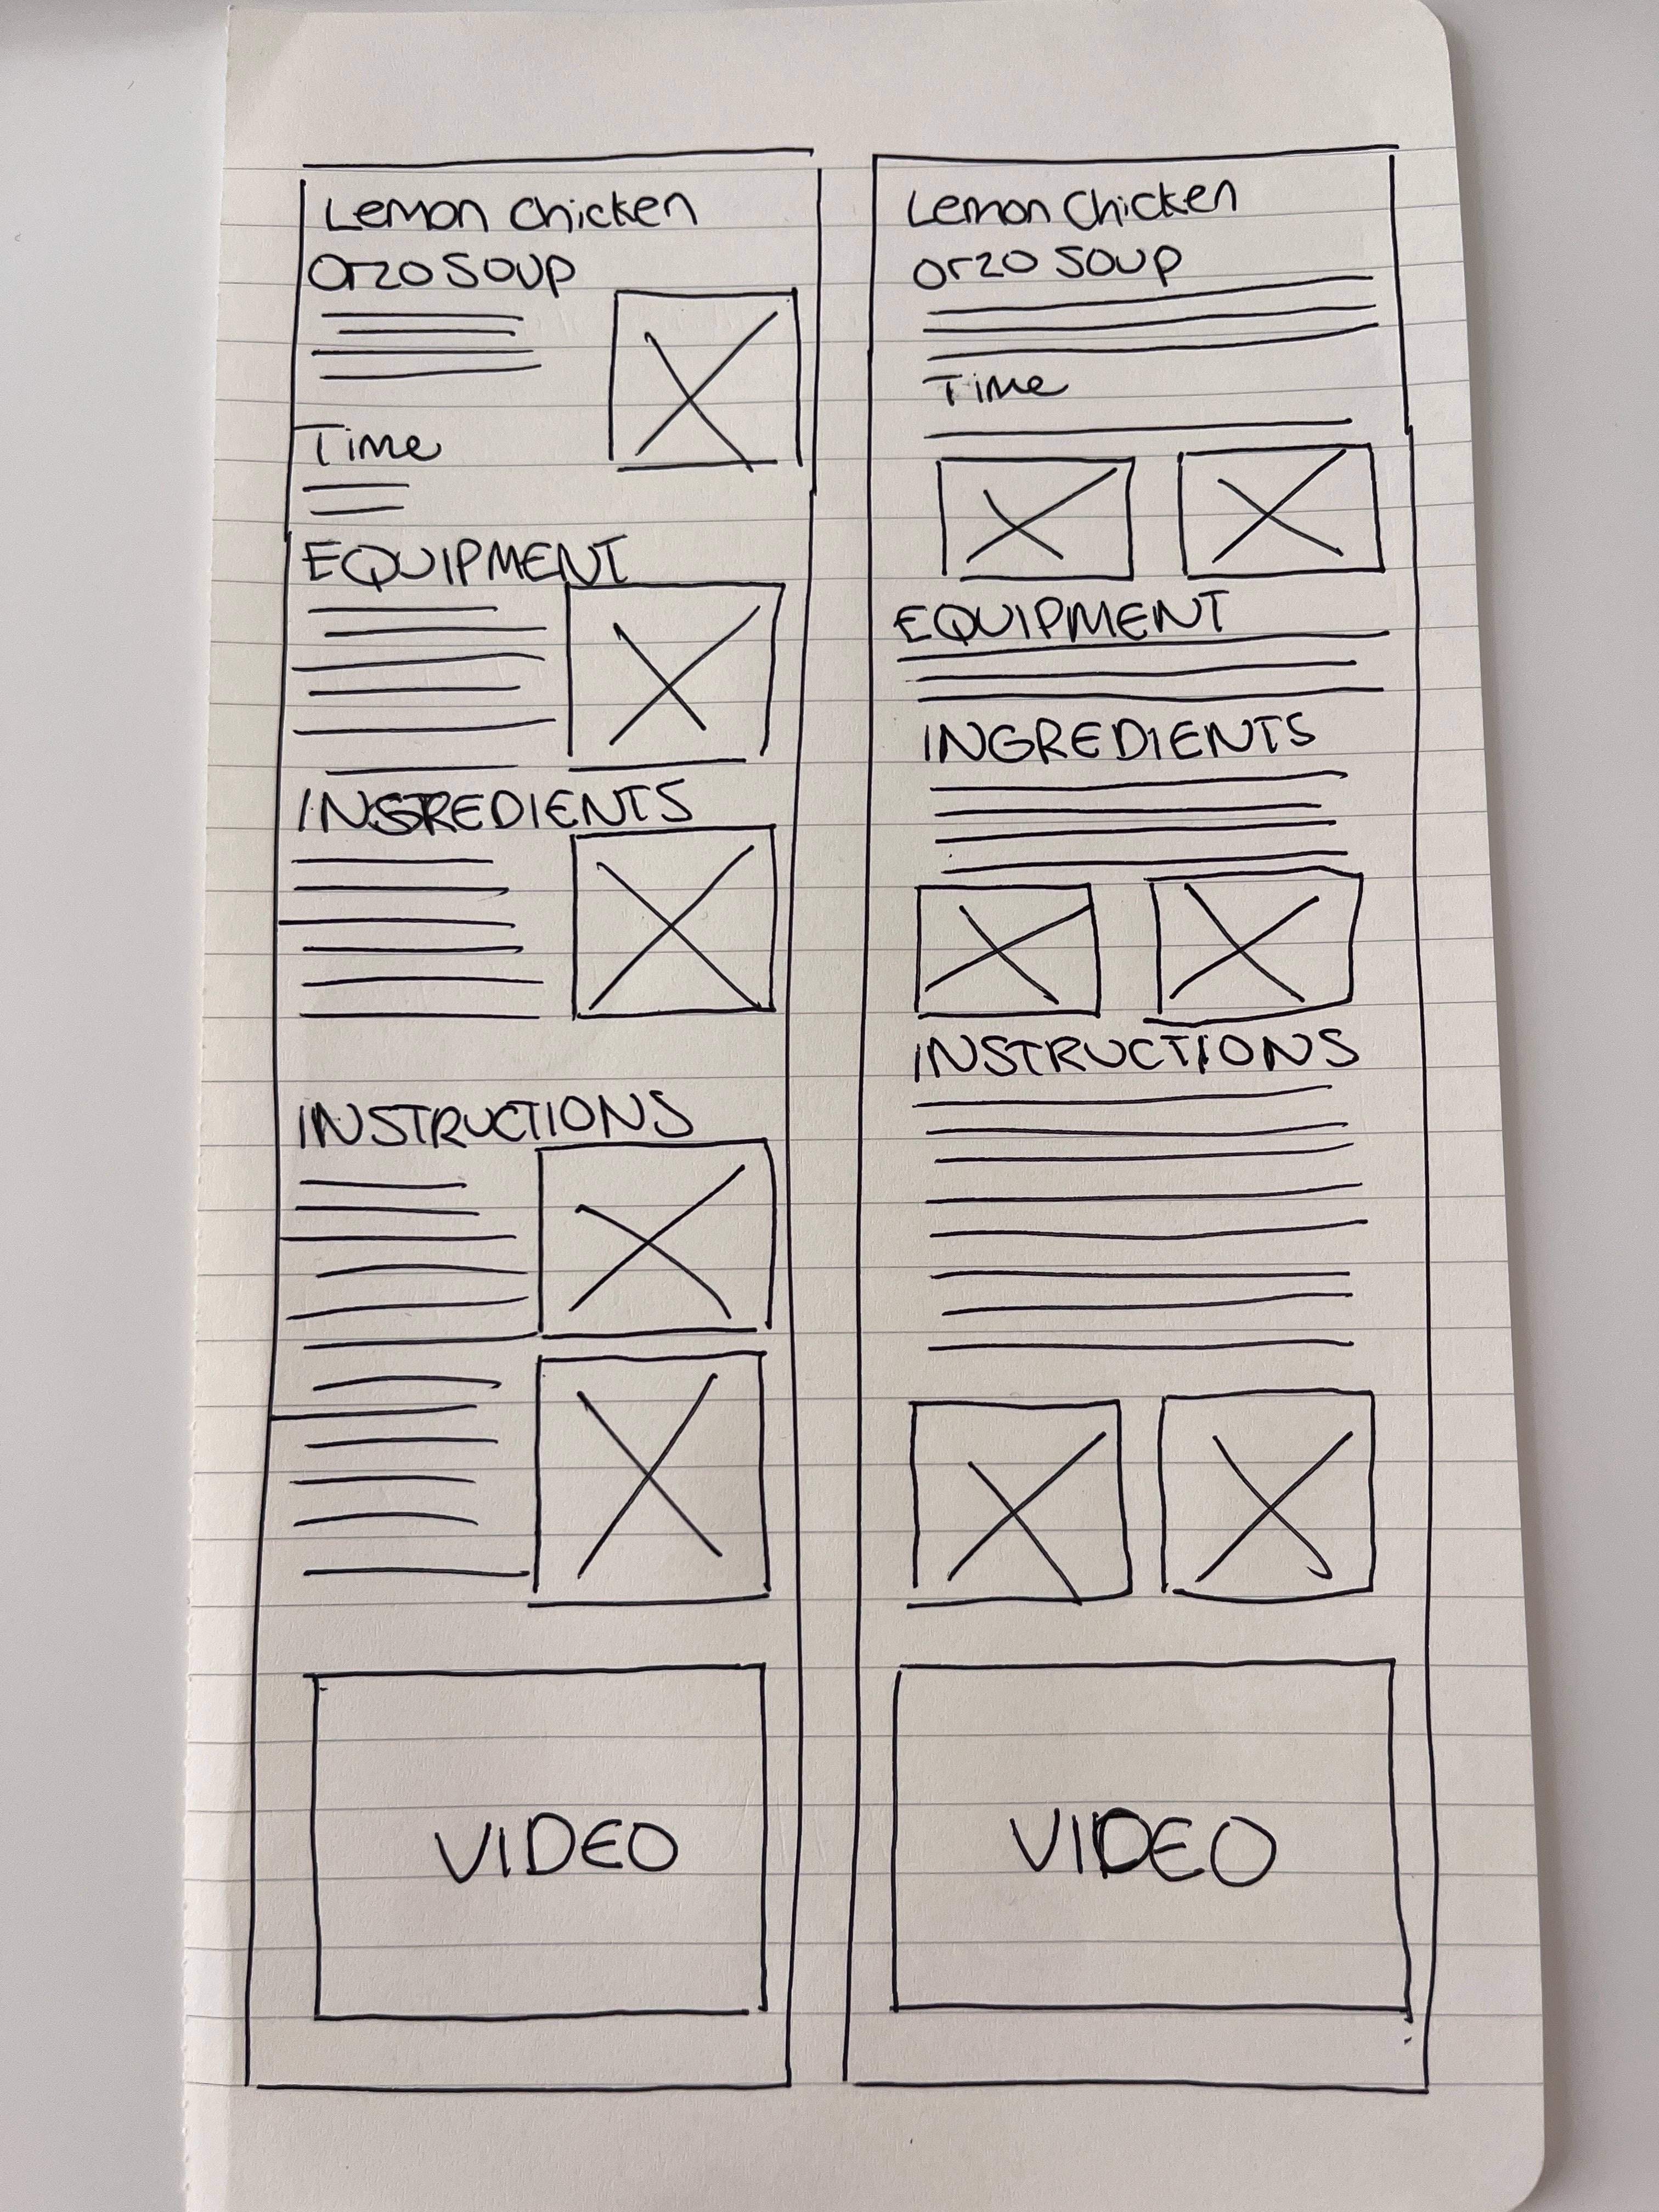 Lemon Chicken
Orzo Soup
Time
EQUIPMENT
INGREDIENTS
INSTRUCTIONS
VIDEO
Lemon Chicken
Orzo Soup
Time
EQUIPMENT
INGREDIENTS
INSTRUCTIONS
VIDEO